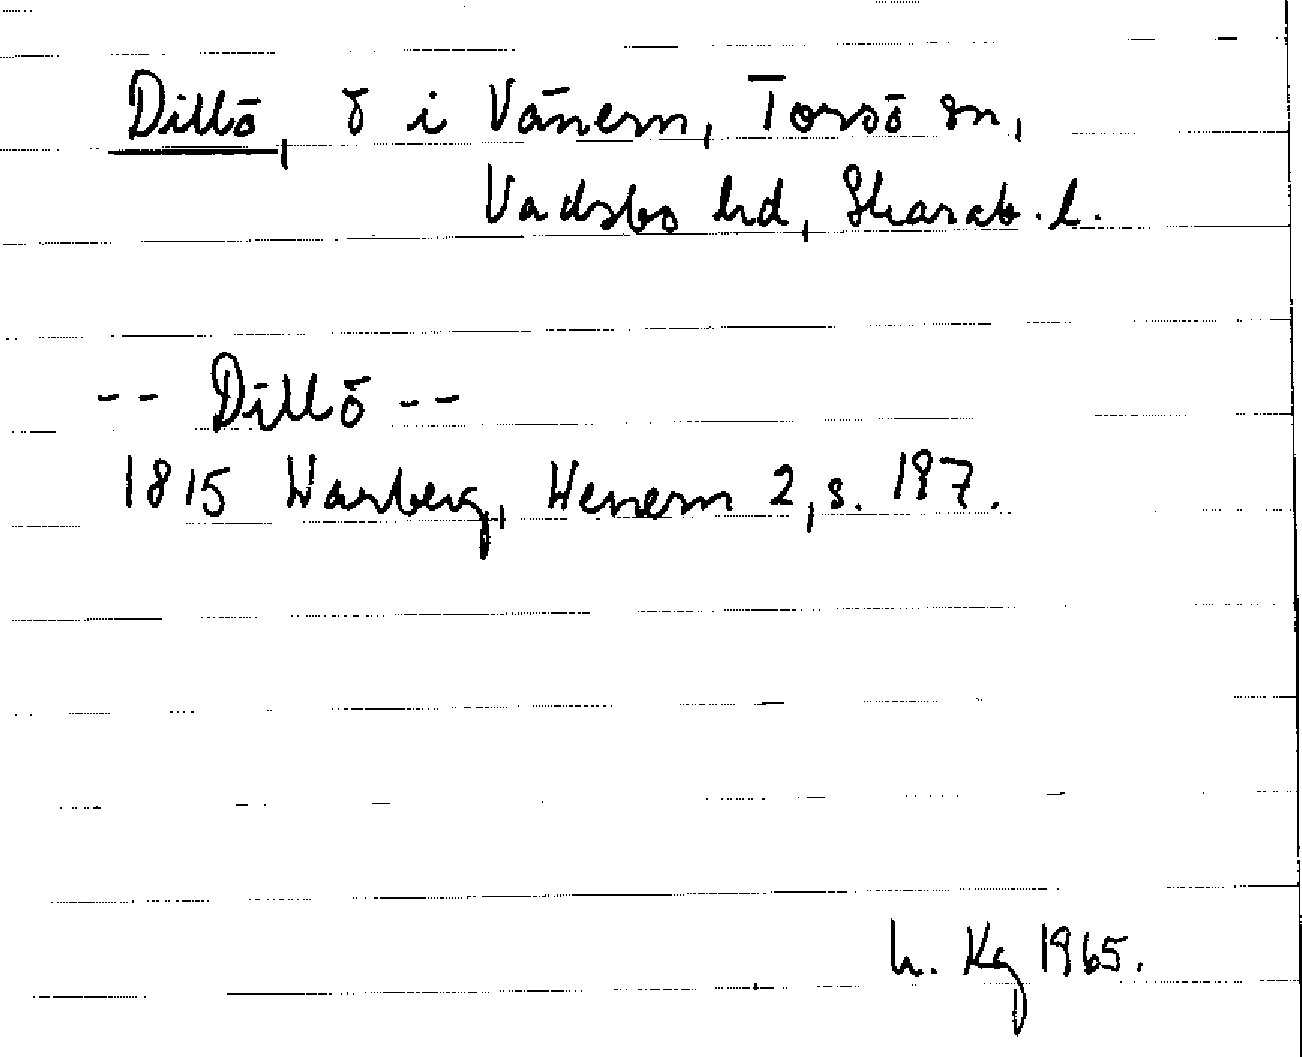 Dillö, ö i Vänern, Torsö sn,
Vadsbo hd, Skarab. l.
-- Dillö --
1815 Warberg, Wenern 2, s. 187.
h. Kg 1965.